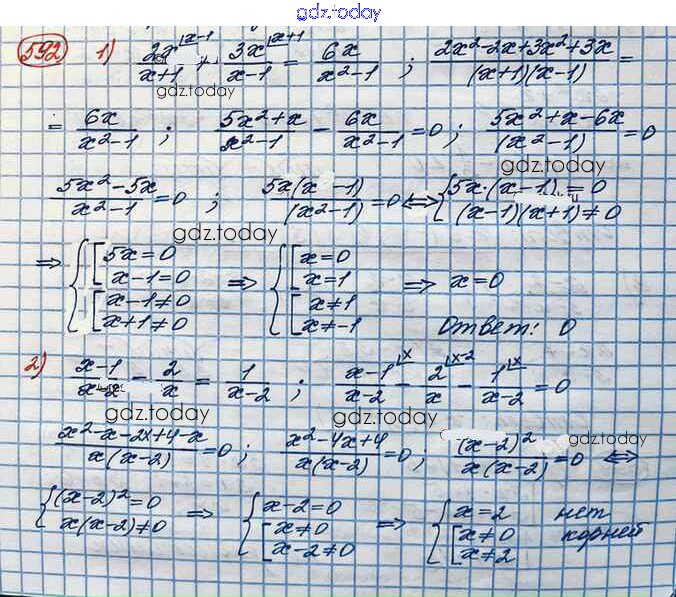 gdz.today
592 1) 2x^{|x-1}/(x+1) + 3x^{|x+1}/(x-1) = 6x/(x²-1) ; (2x²-2x+3x²+3x)/((x+1)(x-1)) =
gdz.today
= 6x/(x²-1) ; (5x²+x)/(x²-1) - 6x/(x²-1) = 0 ; (5x²+x-6x)/(x²-1) = 0
gdz.today
(5x²-5x)/(x²-1) = 0 ; 5x(x-1)/(x²-1) = 0 <=> { 5x·(x-1) = 0 ; (x-1)(x+1) ≠ 0
gdz.today
=> { [ 5x=0 ; x-1=0 ; [ x-1≠0 ; x+1≠0 => { [ x=0 ; x=1 ; [ x≠1 ; x≠-1 => x=0
Ответ: 0
2) (x-1)/(x-2) - 2/x = 1/(x-2) ; (x-1)^{|x}/(x-2) - 2^{|x-2}/x - 1^{|x}/(x-2) = 0
gdz.today gdz.today
(x²-x-2x+4-x)/(x(x-2)) = 0 ; (x²-4x+4)/(x(x-2)) = 0 ; (x-2)²/(x(x-2)) = 0 <=>
gdz.today
{ (x-2)²=0 ; x(x-2)≠0 => { x-2=0 ; [ x≠0 ; x-2≠0 => { x=2 ; [ x≠0 ; x≠2 нет
корней